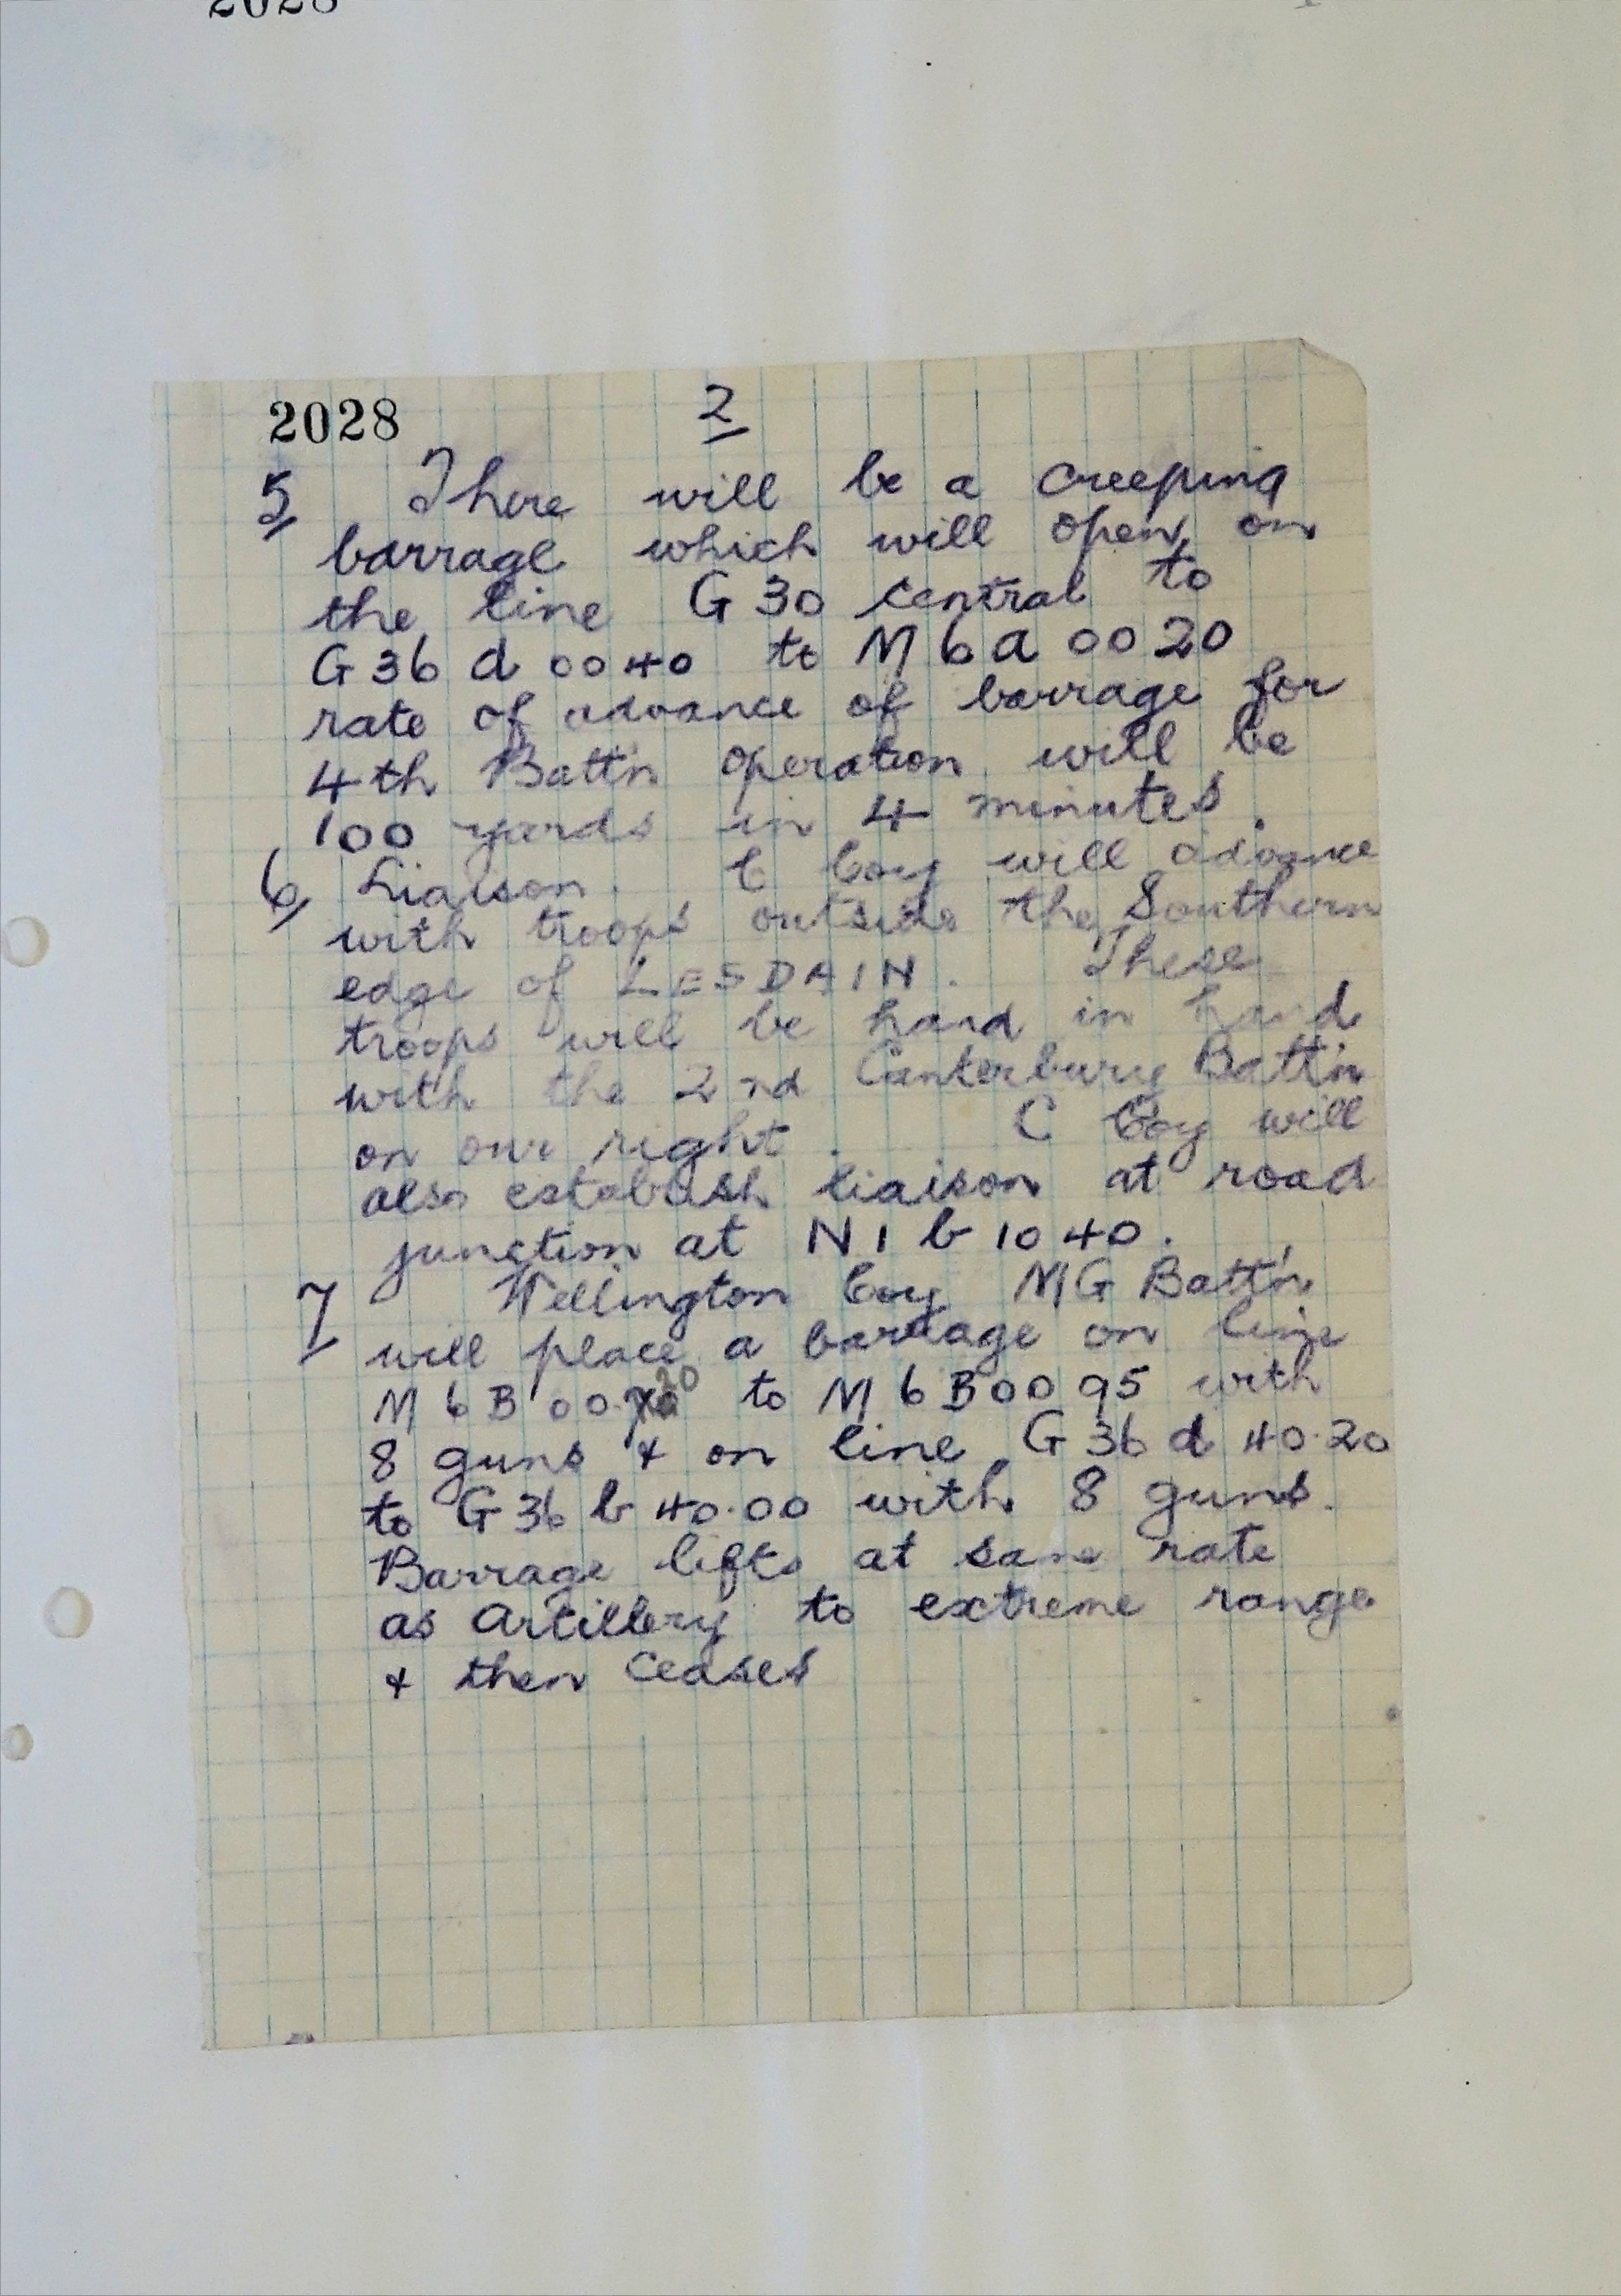 2028
2028
2
5 There will be a creeping
barrage which will open on
the line G 30 central to
G 36 d 00 40 to M 6 a 00 20
rate of advance of barrage for
4th Batt'n operation will be
100 yards in 4 minutes.
6 Liaison. C Coy will advance
with troops outside the Southern
edge of LESDAIN. These
troops will be hand in hand
with the 2nd Canterbury Batt'n
on our right. C Coy will
also establish liaison at road
junction at N 1 b 10 40.
7 Wellington Coy MG Batt'n
will place a barrage on line
M 6 B 00. 20 to M 6 B 00 95 with
8 guns & on line G 36 d 40.20
to G 36 b 40.00 with 8 guns.
Barrage lifts at same rate
as Artillery to extreme range
& then ceases